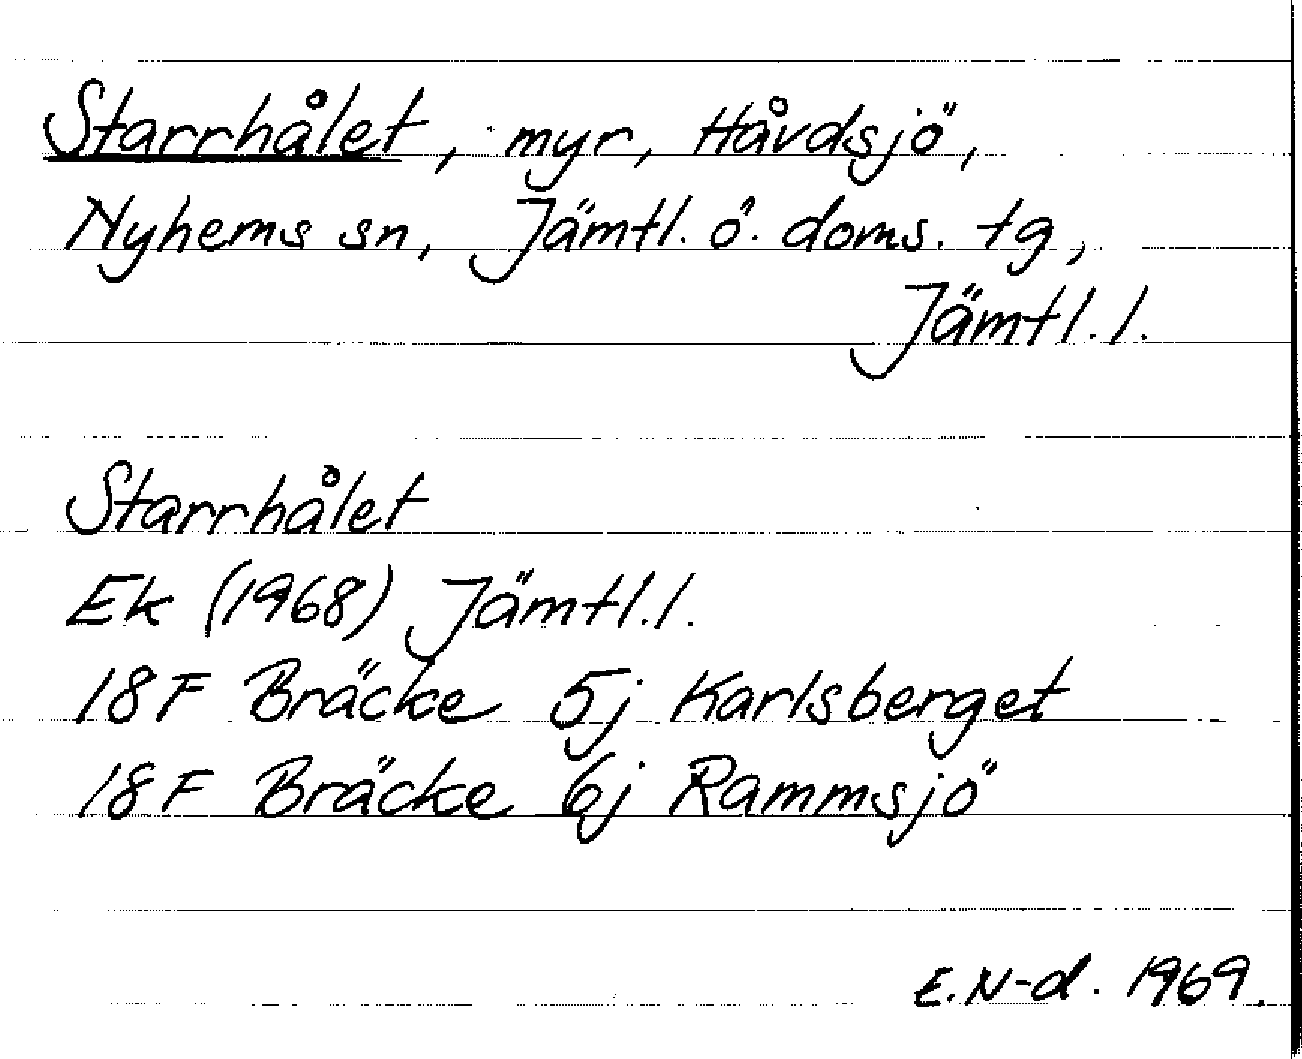 Starrhålet, myr, Håvdsjö,
Nyhems sn, Jämtl. ö. doms. tg,
Jämtl. l.
Starrhålet
Ek (1968) Jämtl. l.
18F Bräcke 5j Karlsberget
18F Bräcke 6j Rammsjö
E. N-d. 1969.